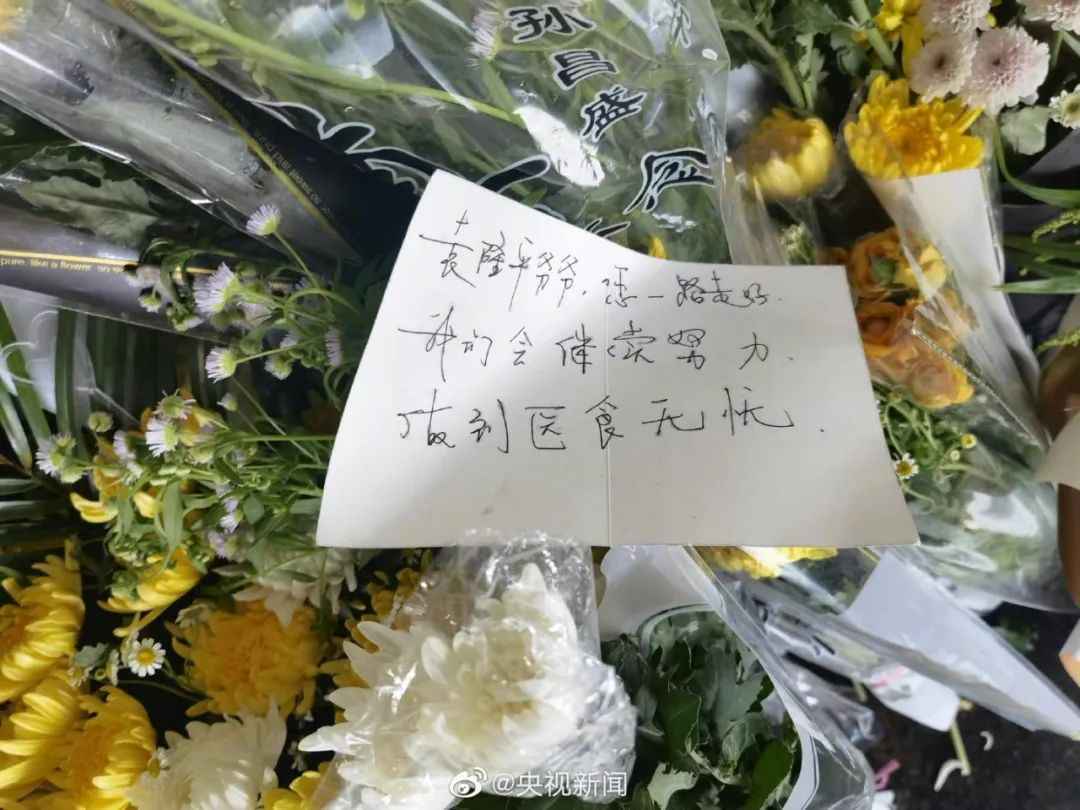 孙昌盛
袁隆平爷爷，您一路走好.
我们会继续努力.
做到医食无忧.
pure. like a flower.
@央视新闻